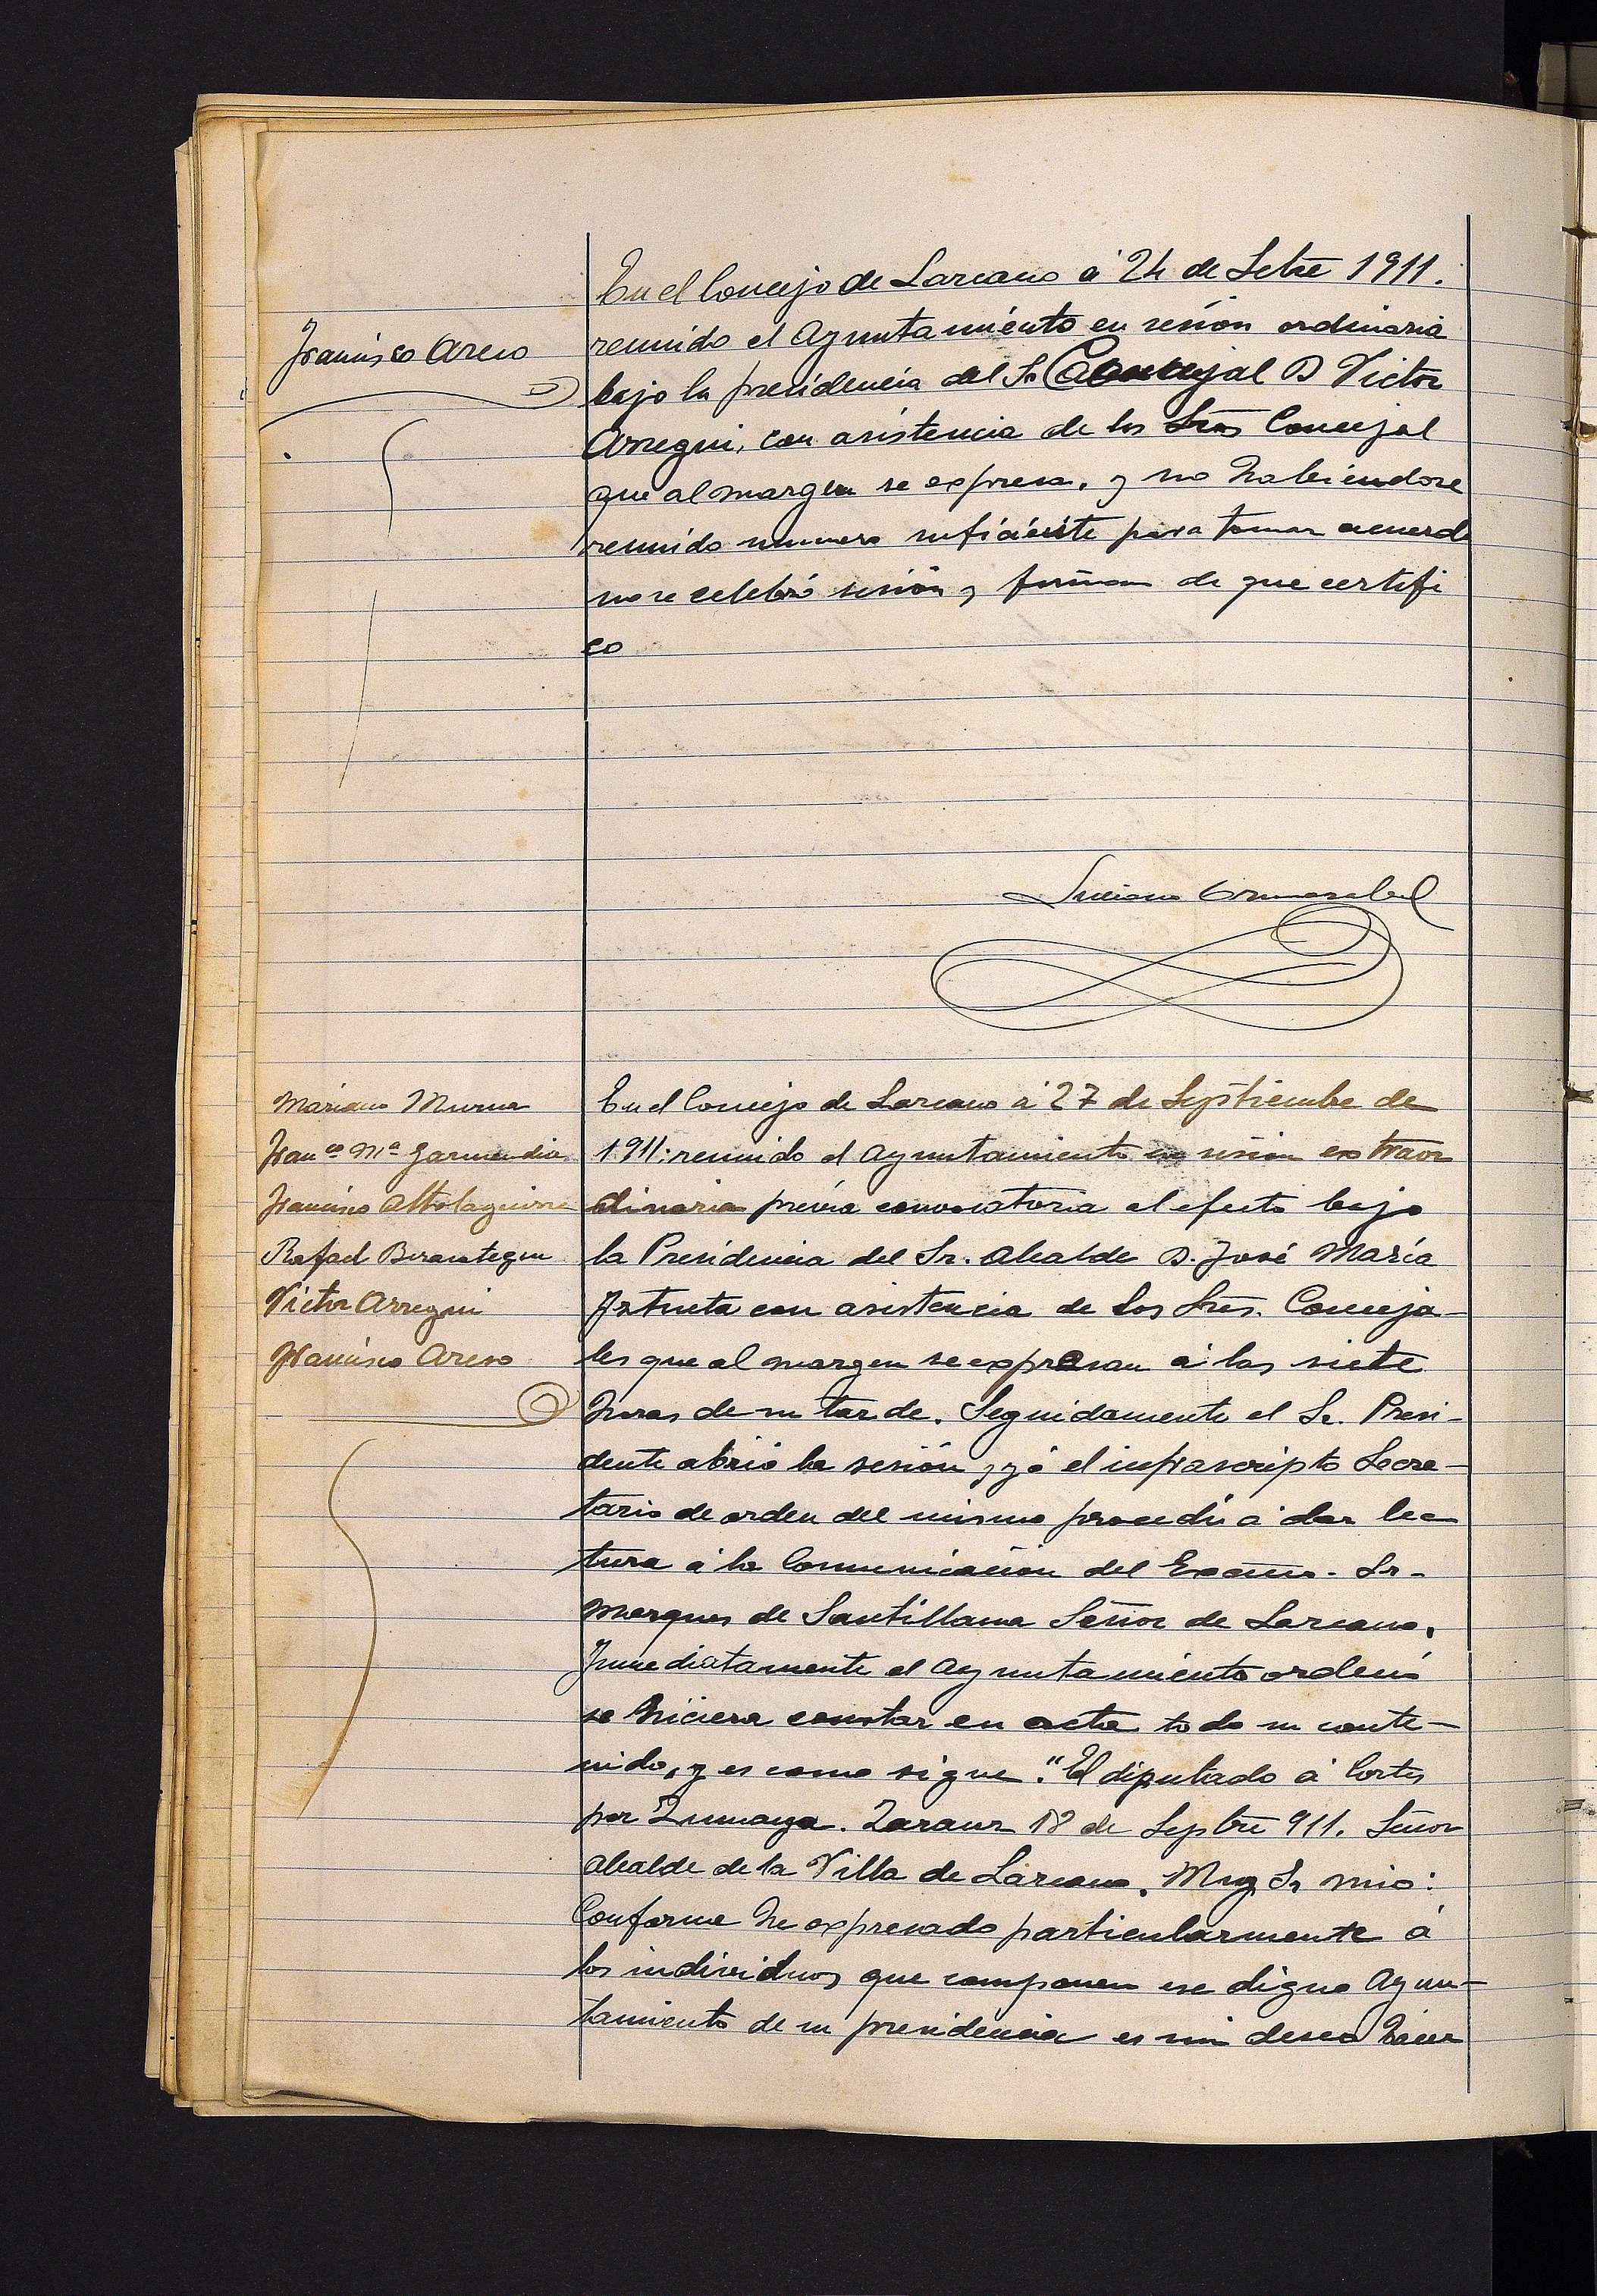 Francisco Areso
En el Concejo de Lazcano á 24 de Setbre 1911.
reunido el Ayuntamiento en sesión ordinaria
bajo la presidencia del Sr Concejal D Victor
Arregui, con asistencia de los Sres Concejal
que al margen se expresa. y no habiendose
reunido numero suficiente para tomar acuerdo
no se celebró sesión y firman de que certifi
co
Luciano Ormazabal
Mariano Murua
Franco Ma Garmendia
Francisco Altolaguirre
Rafael Berasategui
Victor Arregui
Francisco Areso
En el Concejo de Lazcano á 27 de Septiembre de
1911: reunido el Ayuntamiento en sesion extraor
dinaria previa convocatoria al efecto bajo
la Presidencia del Sr. Alcalde D. José María
Aztueta con asistencia de los Sres. Conceja-
les que al margen se expresan á las siete
horas de su tarde. Seguidamente el Sr. Presi-
dente abrió la sesión, y yó el infrascripto Secre-
tario de orden del mismo procedí á dar lec
tura á la Comunicación del Excmo. Sr.
Marques de Santillana Señor de Lazcano.
Inmediatamente el Ayuntamiento ordenó
se hiciera constar en acta todo su conte-
nido, y es como sigue. "El diputado á Cortes
por Zumaya. Zarauz 18 de Septbre 911. Señor
Alcalde de la Villa de Lazcano. Muy Sr mio:
Conforme he expresado particularmente á
los individuos que componen ese digno Ayun-
tamiento de su presidencia es mi deseo hacer